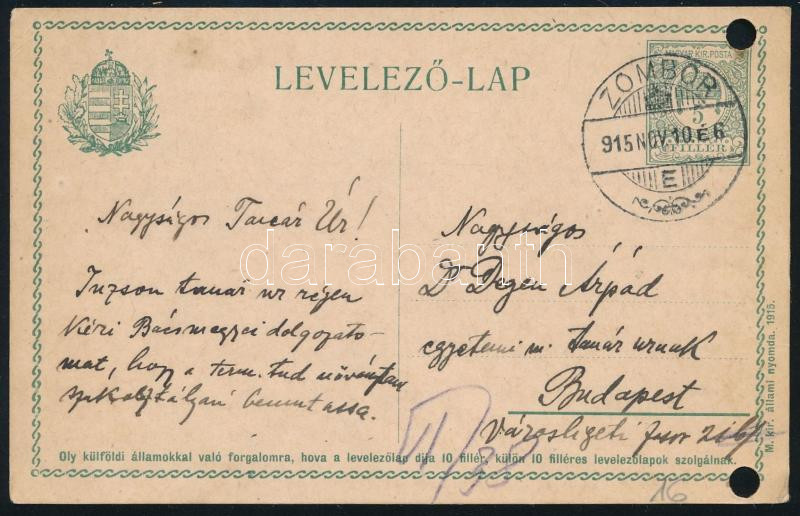 LEVELEZŐ-LAP
MAGYAR KIR. POSTA
5
FILLÉR
ZOMBOR
915 NOV 10. É 6
E
Nagyságos Tanár Úr!
Tuzson tanár ur régen
kéri Bácsmegyei dolgozato-
mat, hogy a term. tud növénytani
szakosztályán bemutassa.
Nagyságos
Dr Degen Árpád
egyetemi m. tanár urnak
Budapest
Városligeti fasor
Oly külföldi államokkal való forgalomra, hova a levelezőlap díja 10 fillér, külön 10 filléres levelezőlapok szolgálnak.
M. kir. állami nyomda. 1915.
16
darabanth